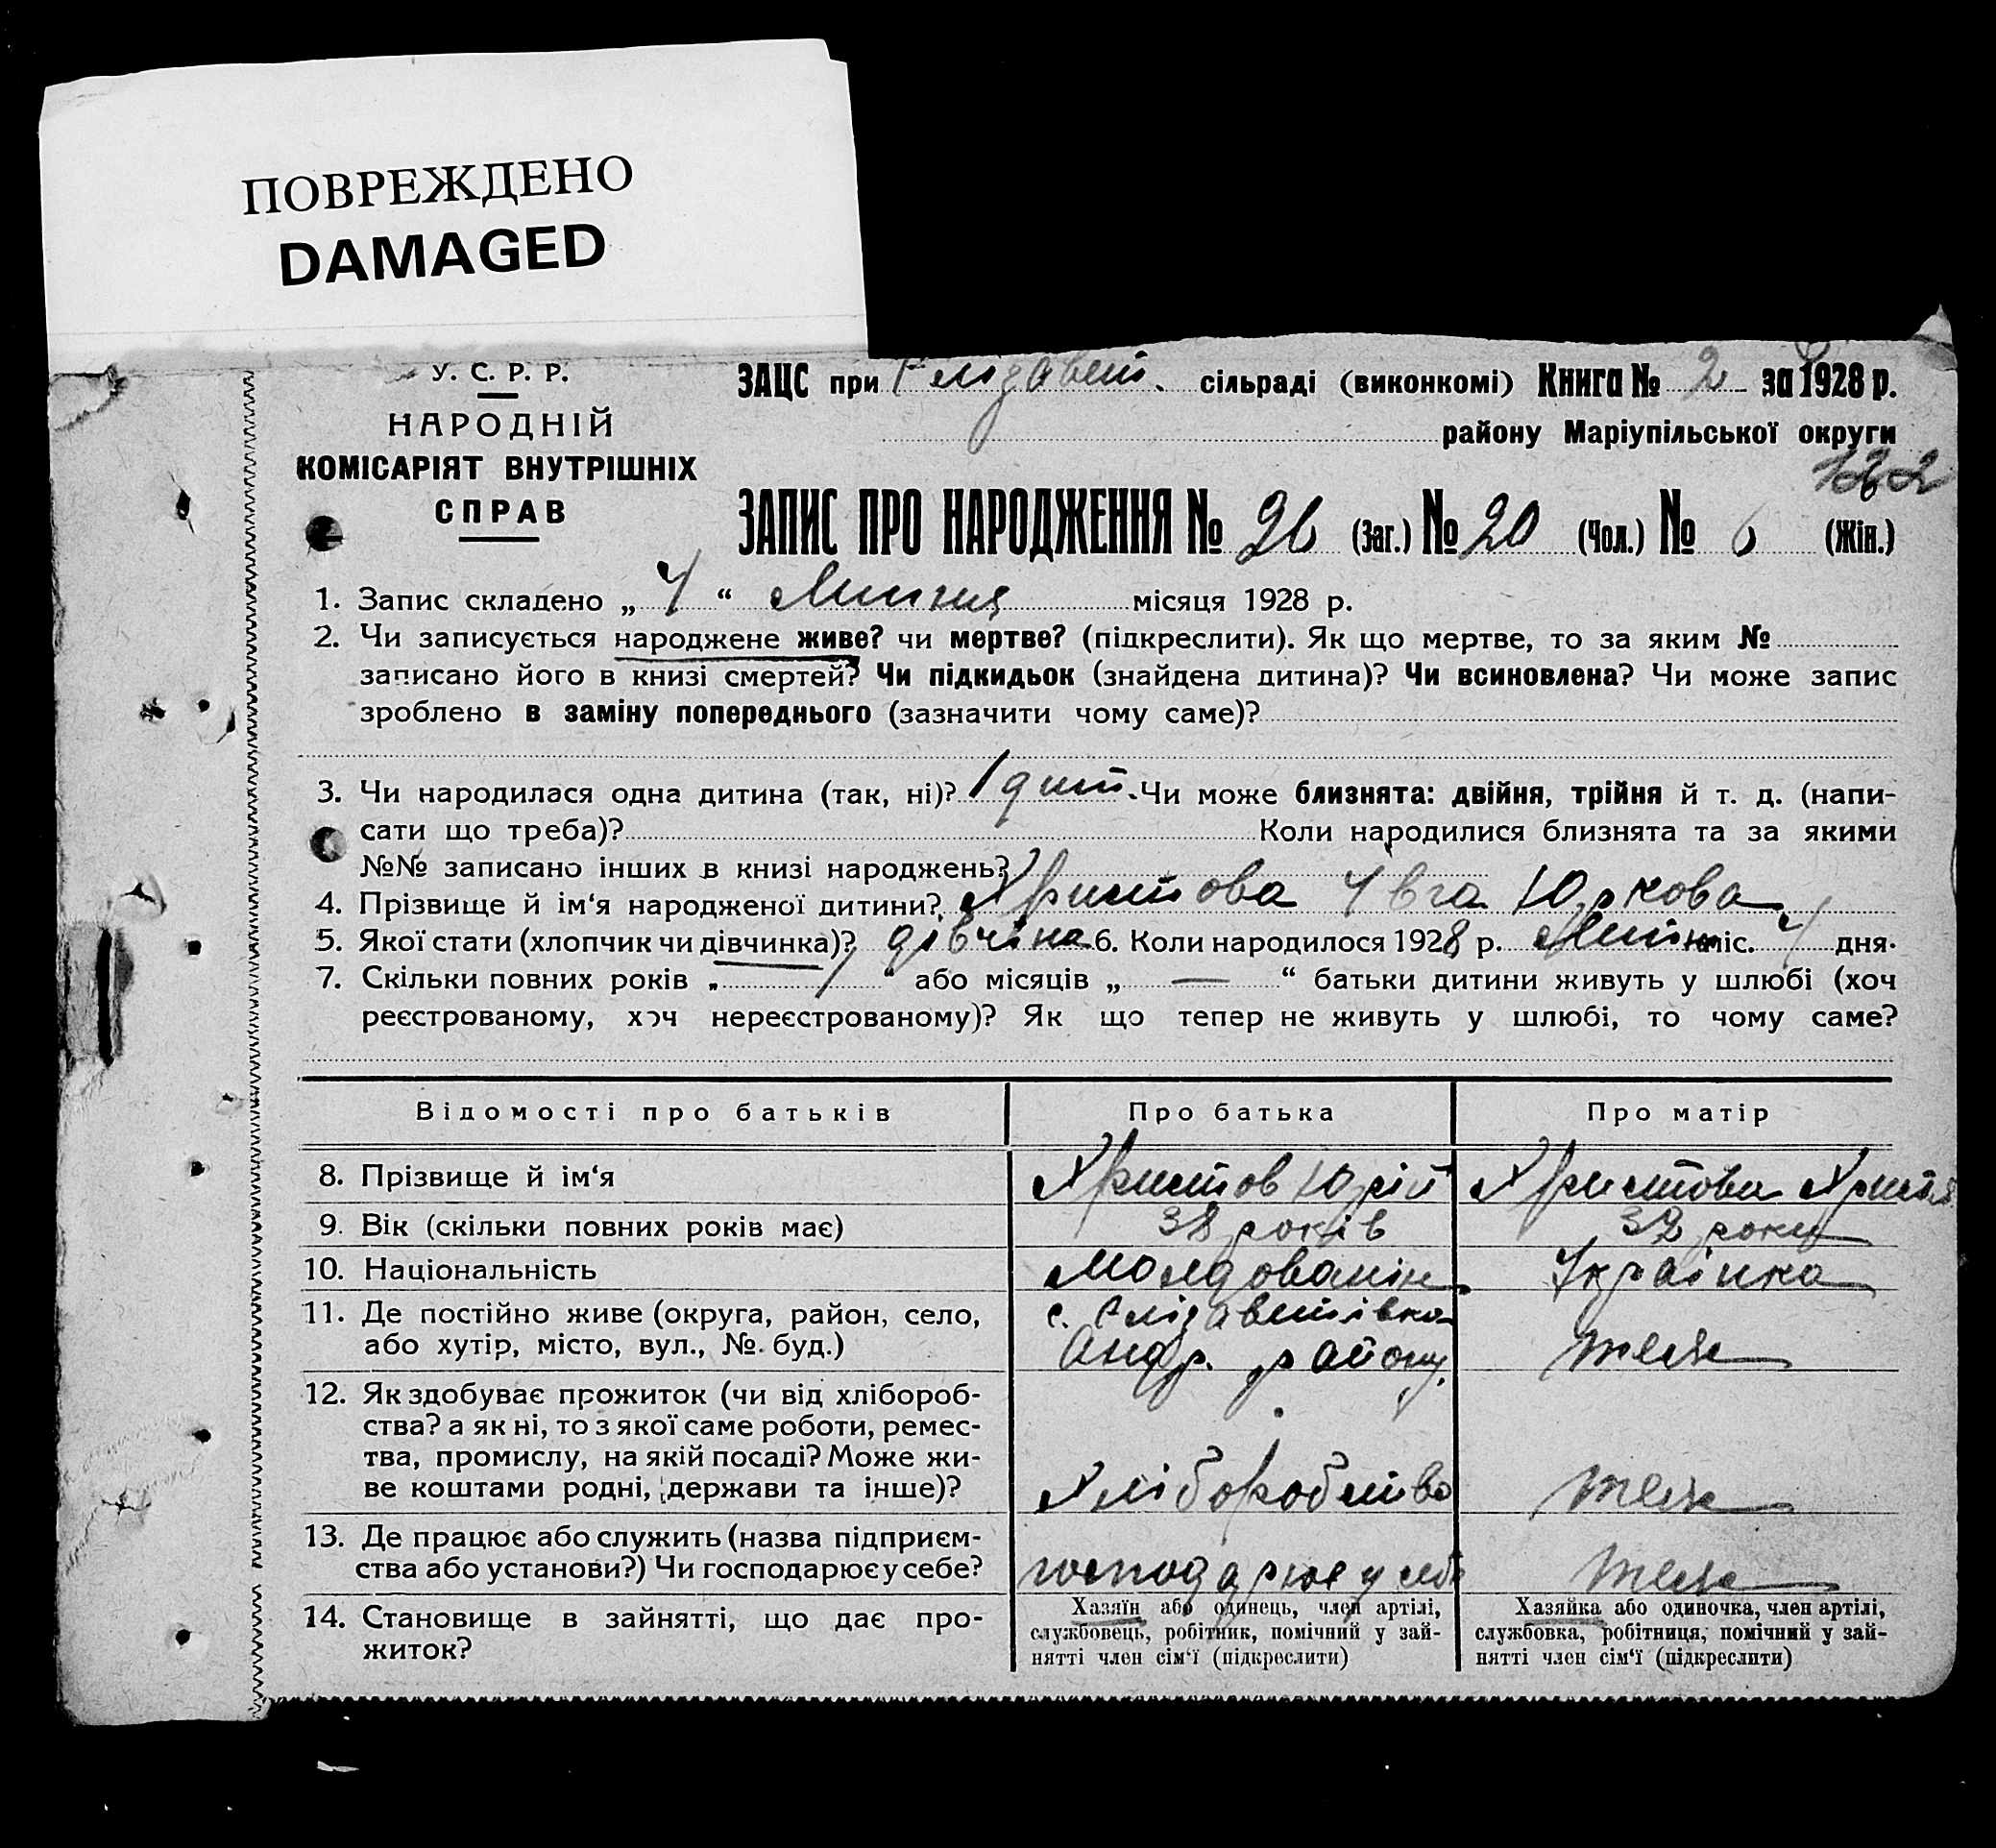 ПОВРЕЖДЕНО
DAMAGED
У. С. Р. Р.
НАРОДНІЙ
КОМІСАРІЯТ ВНУТРІШНІХ
СПРАВ
ЗАЦС при Єлізавет. сільраді (виконкомі) Книга № 2 за 1928 р.
району Маріупільської округи
122
ЗАПИС ПРО НАРОДЖЕННЯ № 26 (Заг.) № 20 (Чол.) № 6 (Жін.)
1. Запис складено „ 4 “ Липня місяця 1928 р.
2. Чи записується народжене живе? чи мертве? (підкреслити). Як що мертве, то за яким №
записано його в книзі смертей? Чи підкидьок (знайдена дитина)? Чи всиновлена? Чи може запис
зроблено в заміну попереднього (зазначити чому саме)?
3. Чи народилася одна дитина (так, ні)? 1 дит. Чи може близнята: двійня, трійня й т. д. (напи-
сати що треба)? Коли народилися близнята та за якими
№№ записано інших в книзі народжень?
4. Прізвище й ім‘я народженої дитини? Христова Юркова
5. Якої стати (хлопчик чи дівчинка)? дівчіна 6. Коли народилось 1928 р. міс. 4 дня.
7. Скільки повних років „ “ або місяців „ — “ батьки дитини живуть у шлюбі (хоч
реєстрованому, хоч нереєстрованому)? Як що тепер не живуть у шлюбі, то чому саме?
Відомості про батьків Про батька Про матір
8. Прізвище й ім‘я Христов Юрій Христова Христя
9. Вік (скільки повних років має) 38 років 32 роки
10. Національність Молдованін Українка
11. Де постійно живе (округа, район, село, с. Єлізаветівка
або хутір, місто, вул., №. буд.) Андр. району. теж
12. Як здобуває прожиток (чи від хлібороб-
ства? а як ні, то з якої саме роботи, ремес-
тва, промислу, на якій посаді? Може жи-
ве коштами родні, держави та інше)? Хліборобство теж
13. Де працює або служить (назва підприєм-
ства або установи?) Чи господарює у себе? господарює у себе теж
14. Становище в зайнятті, що дає про-
житок?
Хазяїн або одинець, член артілі,
службовець, робітник, помічний у зай-
нятті член сім‘ї (підкреслити)
Хазяйка або одиночка, член артілі,
службовка, робітниця, помічний у зай-
нятті член сім‘ї (підкреслити)